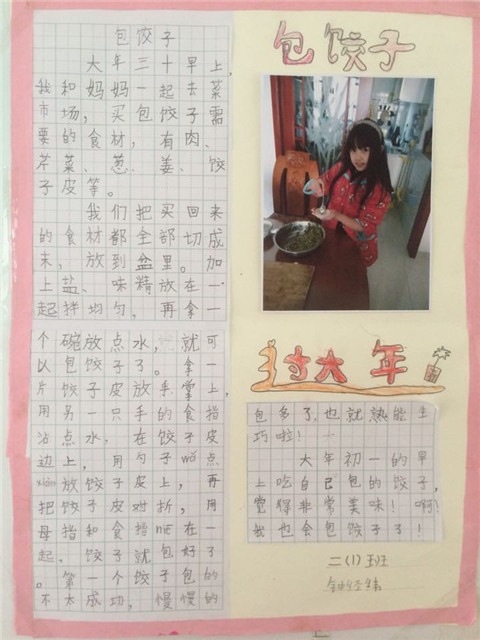 包饺子
大年三十早上，
我和妈妈一起去菜
市场，买包饺子需
要的食材，有肉、
芹菜、葱、姜、饺
子皮等。
我们把买回来
的食材都全部切成
末，放到盆里。加
上盐、味精放在一
起拌均匀，再拿一
个碗放点水，就可
以包饺子了。拿一
片饺子皮放手掌上，
用另一只手的食指
沾点水，在饺子皮
边上，用勺子wō点
xiàn放饺子皮上，再
把饺子皮对折，用
母指和食指niē在一
起，饺子就包好了
。第一个饺子包的
不太成功，慢慢的
包饺子
过大年
包多了，也就熟能生
巧啦！
大年初一的早
上吃自己包的饺子，
觉得非常美味！啊！
我也会包饺子了！
二（1）班